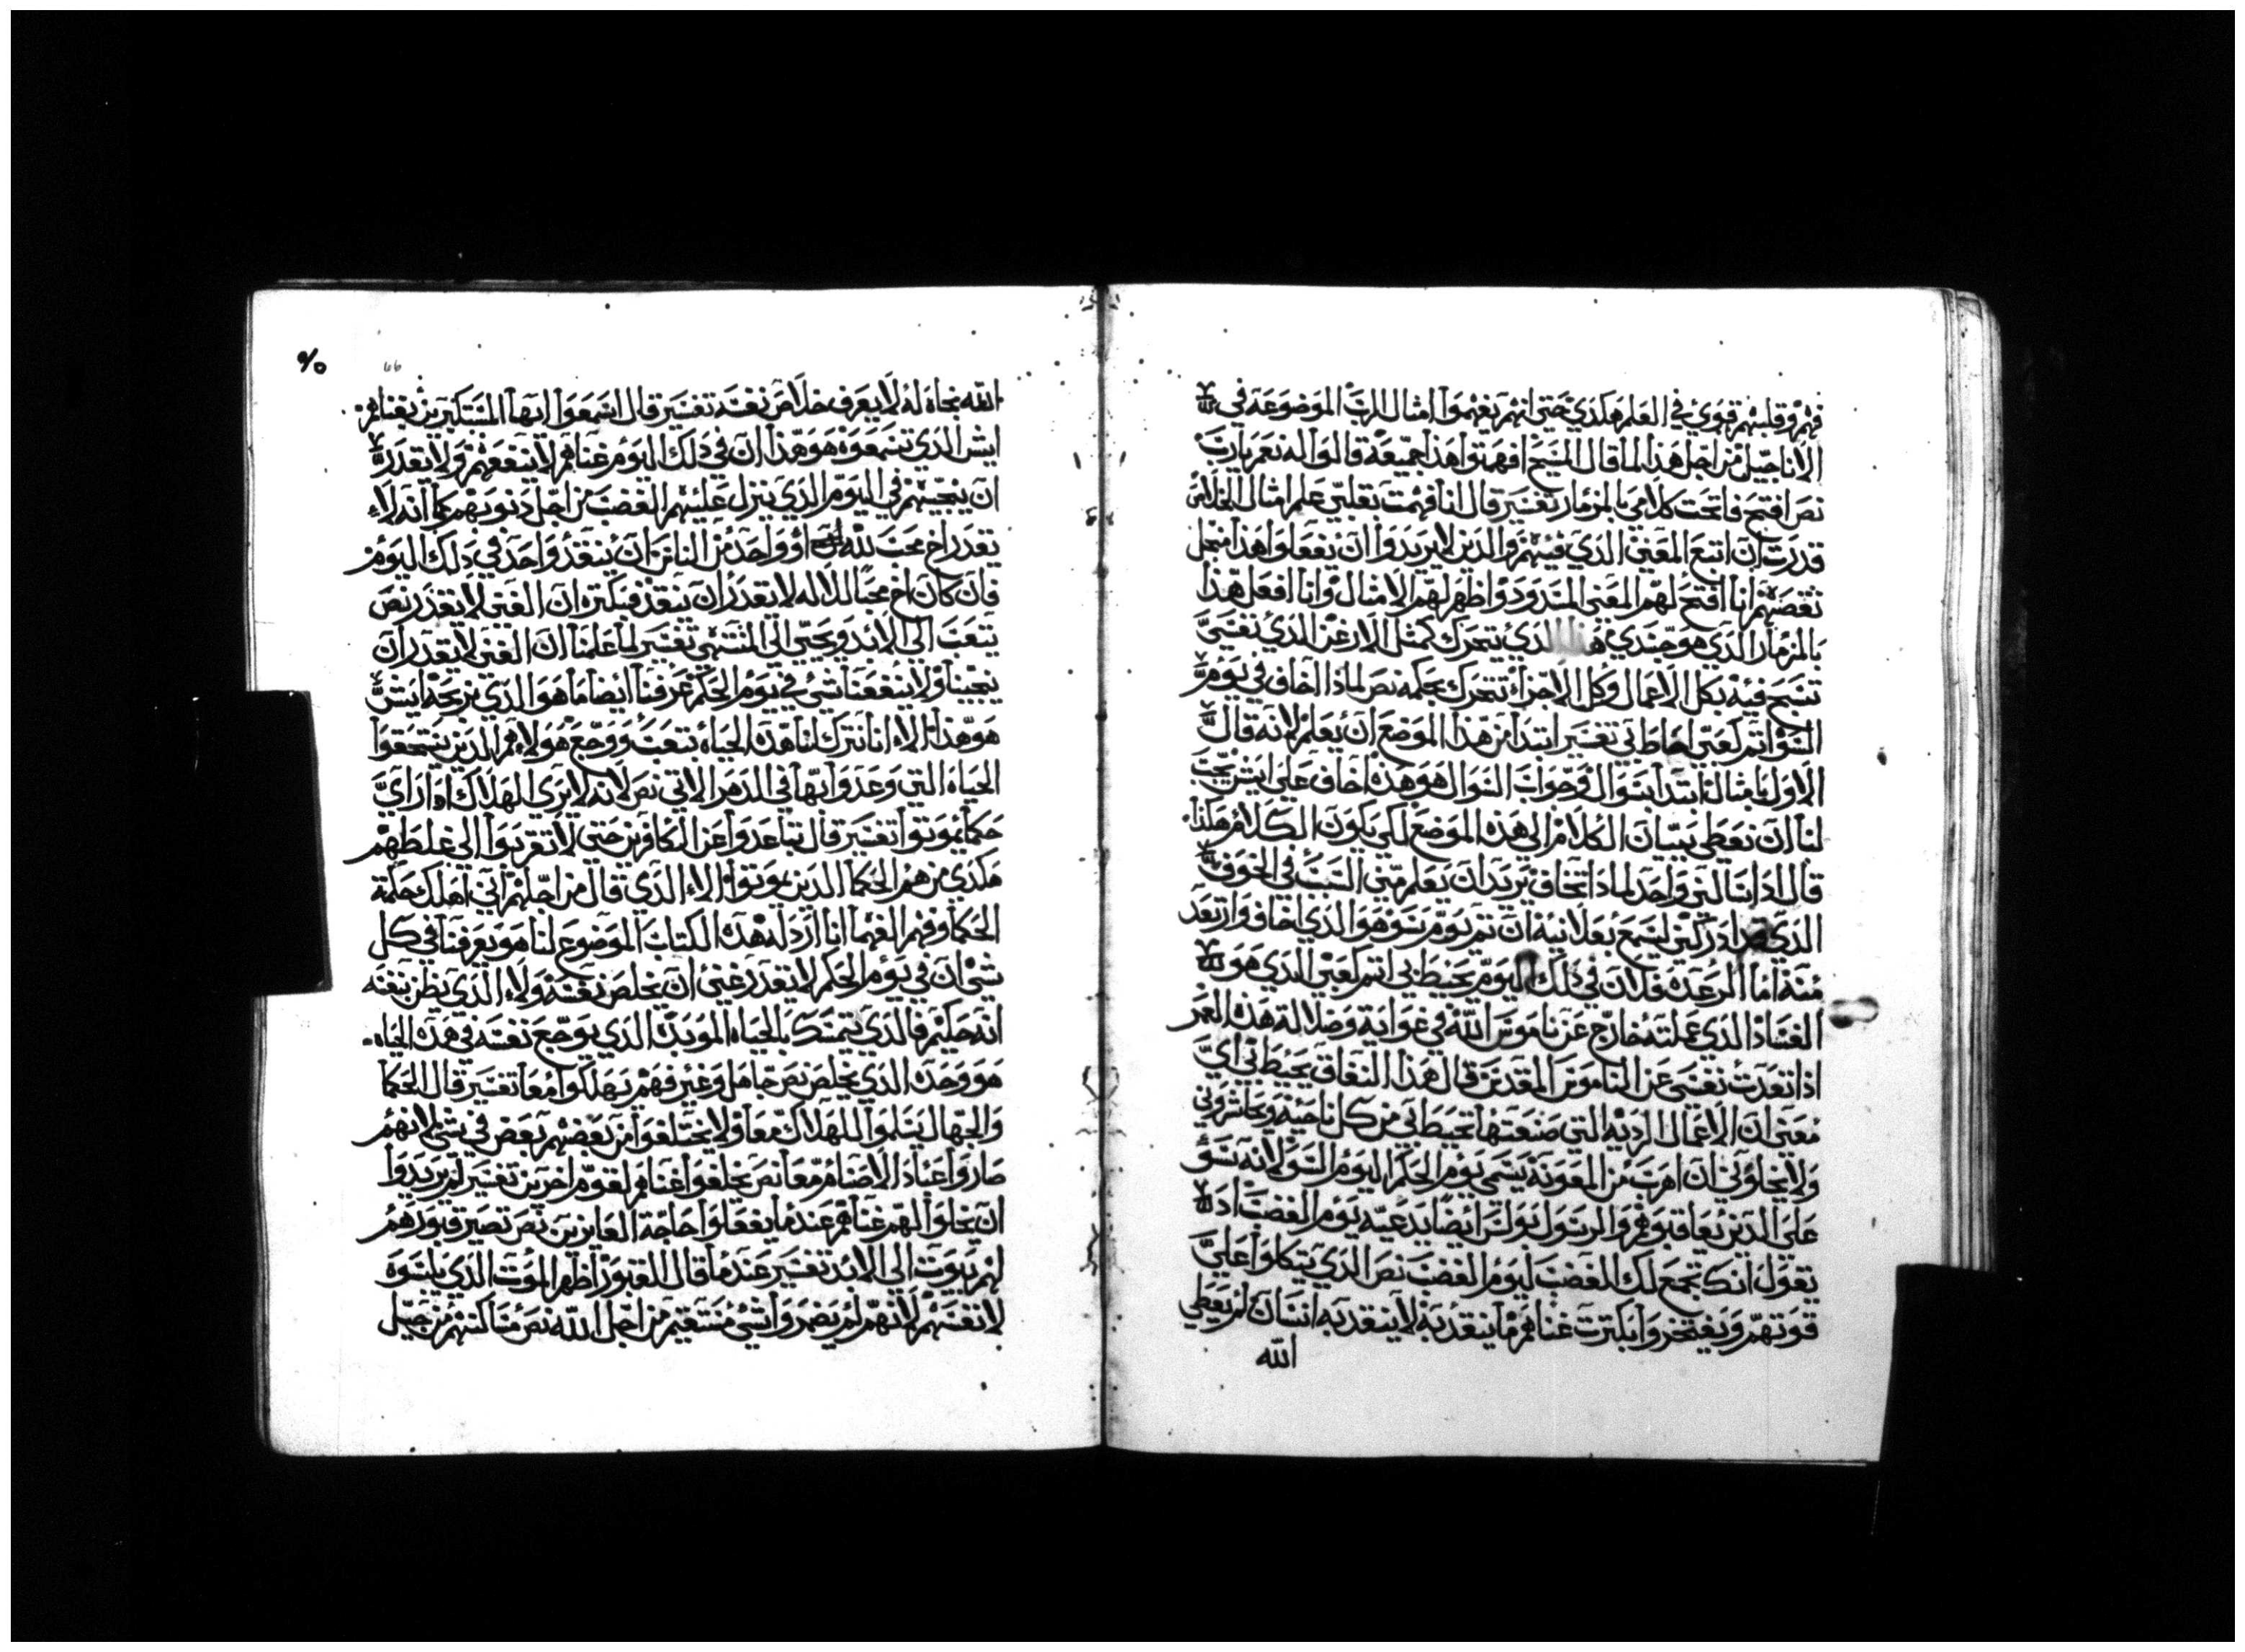 فهم وقلبهم قوي في العلم هكذي حتى انهم يفهموا امثال الرب الموضوعه في
الاناجيل من اجل هذا لما قال المسيح افهمتوا هذا جميعه قالوا له نعم يارب
نص افتح فاتحت كلامي بالمزمار تفسير قال لنا فهمت بقلبي علم امثال الخلاص
قدرت ان اتبع المعني الذي فيهم والذين لا يريدوا ان يفعلوا هذا منجل
نقصهم انا افتح لهم المعني المسدود واظهر لهم الامثال وانا افعل هذا
بالمزمار الذي هو جسدي الذي يتحرك كمثل الارغن الذي نفسي
تسبح فيه بكل الاعمال وكل الاجزاء تتحرك بحكمه نص لماذا اخاف في يوم
السو اثم كعبي احاط بي تفسير ابتدا من هذا الموضع ان يعلم لانه قال
الاول بامثاله ابتدا بسوال وجواب السوال هو هذه اخاف علي ايش يجب
لنا ان نعطي بيان الكلام الي هذه الموضع لكي يكون الكلام هكذا
قال اذا سالني واحد لماذا تخاف تريد ان تعلم مني السبب في الخوف
الذي ادركني ليسمع بعلانيه ان ثم يوم سو هو الذي اخاف وارتعد
منه اما الرعده فلان في ذلك اليوم يحيط بي اثم كعبي الذي هو
الفساد الذي عملته خارج عن ناموس الله في غوايه وضلالة هذه العمر
اذا تعدت نفسي عن الناموس المقدس قال هذا النفاق يحيط بي اي
معني ان الاعمال الرديه التي صنعتها تحيط بي من كل ناحيه وتحاشروني
ولا يخلوني ان اهرب من المعونه يسمي يوم الحكم اليوم السو لانه سو
علي الذين يعاقبوهم والرسول بولس ايضا يدعيه يوم الغضب اذ
يقول انك تجمع لك الغضب ليوم الغضب نص الذي يتكلوا علي
قوتهم ويفتخروا بكترت غناهم ما ينقد به لا ينقد به انسان لم يعطي
الله
الله نجاه له لا يعرف خلاص نفسه تفسير قال اسمعوا ايها المستكبرين بغناهم
ايش الذي تسمعوه هو هذا ان في ذلك اليوم غناهم لا ينفعهم ولا يقدر
ان ينجيهم في اليوم الذي ينزل عليهم الغضب من اجل ذنوبهم كما انه لا
يقدر اخ محب لله او واحد من الناس ان ينقذ واحد في ذلك اليوم
فان كان اخ محبا للاله لا يقدر ان ينقد فبكتره ان الغني لا يقدر نص
يتعب الي الابد ويحيي الي المنتهي تفسير لما علمنا ان الغني لا يقدر ان
ينجينا ولا ينفعنا شي في يوم الحكم عرفنا ايضا ما هو الذي نربحه ايش
هو هذا الا اننا نترك لنا هذه الحياه بتعب ووجع هولاء هم الذين يستحقوا
الحياه التي وعدوا بها في الدهر الاتي نص لانه لا يري الهلاك اذا راي
حكما يموتوا تفسير قال تباعدوا عن الكافرين حتى لا تقربوا الي غلطهم
هكذي من هم الحكما الذين يموتوا الا الذي قال من اجلهم اني اهلك حكمة
الحكما وفهم الفهما انا ارذله هذه الكتاب الموضوع لنا هو يعرفنا في كل
شي ان في يوم الحكم لا يقدر غني ان يخلص نفسه ولا الذي يظن بنفسه
انه حكيم فالذي يتمسك بالحياه الموبده الذي يوجع نفسه في هذه الحياه
هو وحده الذي يخلص نص جاهل وغير فهم يهلكوا معا تفسير قال الحكما
والجهال يسلموا للهلاك معا ولا يختلفوا من بعضهم بعض في شي لانهم
صاروا عباد الاصنام معا نص يخلفوا غناهم لقوم اخرين تفسير لم يريدوا
ان يخلوا لهم غناهم عندما يفعلوا حاجة العايزين نص تصير قبورهم
لهم بيوت الي الابد تفسير عندما قال للقبور اظهر الموت الذي يلبسوه
لانفسهم لانهم لم يضمروا شي مستقيم من اجل الله نص مساكنهم من جيل